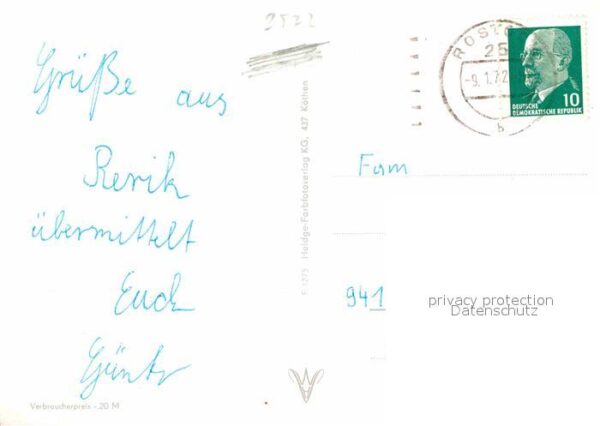 2522
Grüße aus
Rerik
übermittelt
Euch
Verbraucherpreis -,20 M
Heldge-Farbfotoverlag KG, 437 Köthen
25
-9.1.72
b
DEUTSCHE
DEMOKRATISCHE REPUBLIK
10
Fam
941
privacy protection
Datenschutz